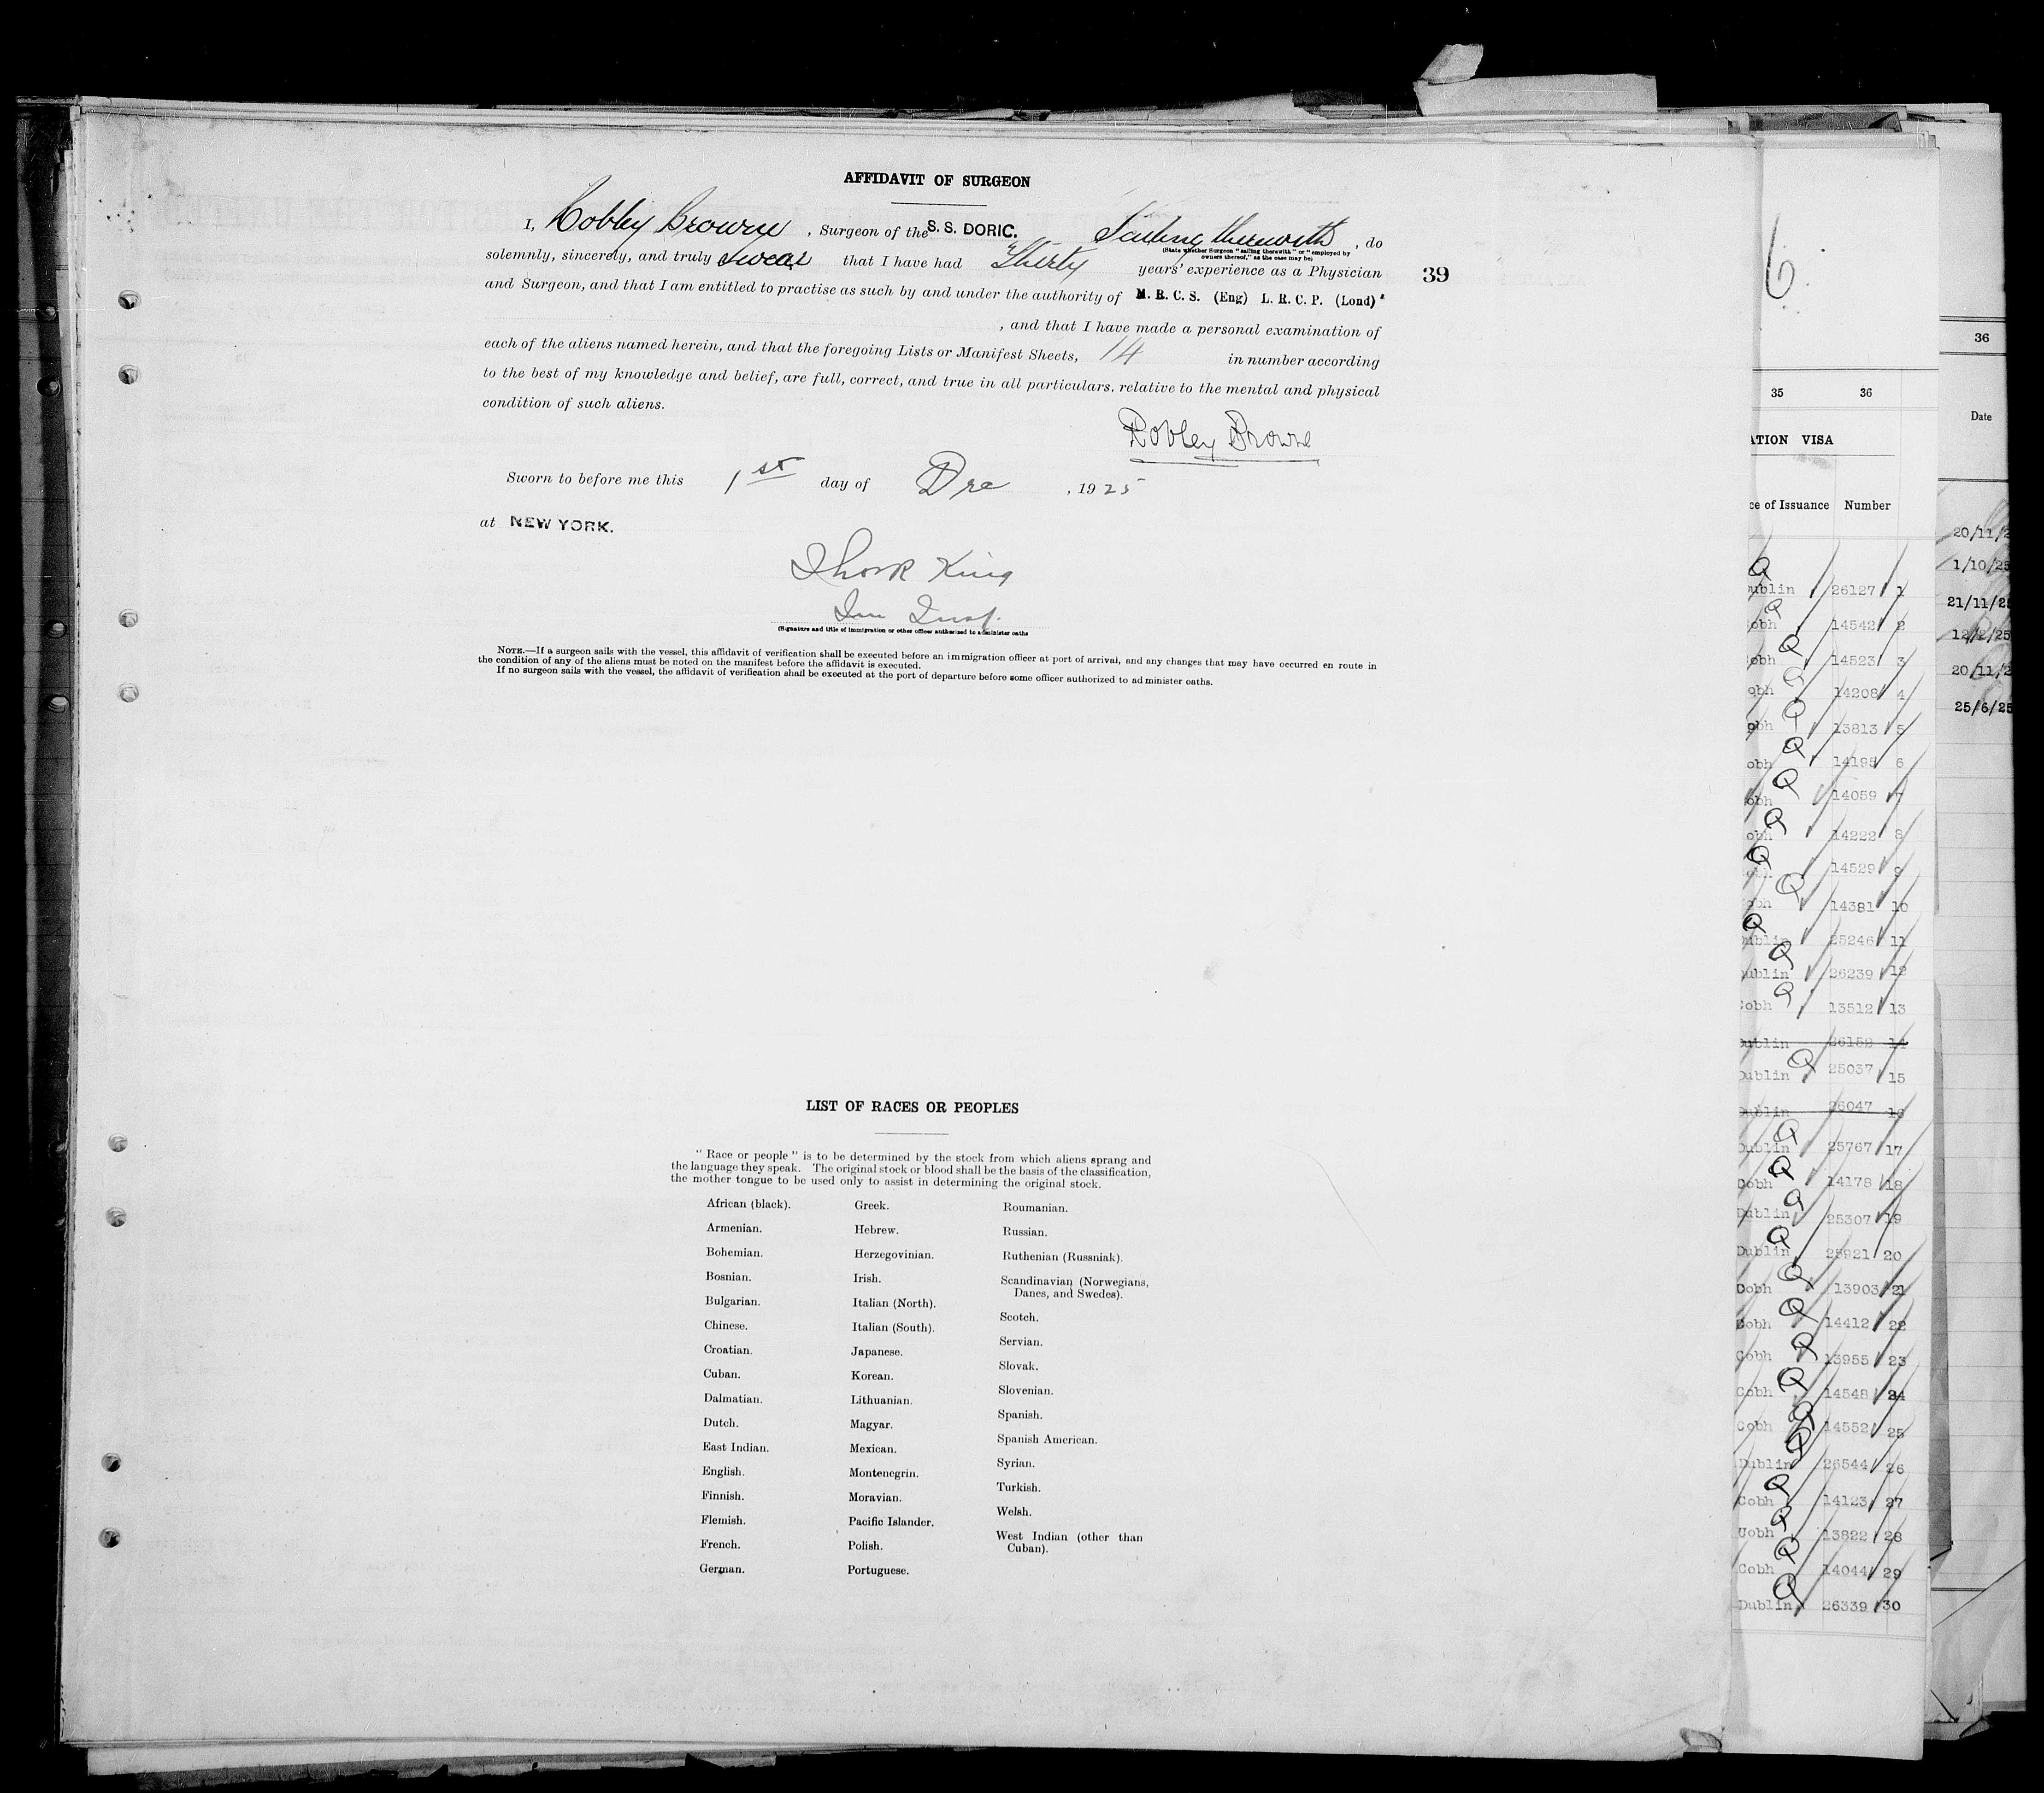 AFFIDAVIT OF SURGEON
I, Robley Browne, Surgeon of the S. S. DORIC. Sailing therewith, do
(State whether Surgeon "sailing therewith" or "employed by
owners thereof," as the case may be)
solemnly, sincerely, and truly swear that I have had Thirty years' experience as a Physician
39
and Surgeon, and that I am entitled to practise as such by and under the authority of M. R. C. S. (Eng) L. R. C. P. (Lond)
, and that I have made a personal examination of
each of the aliens named herein, and that the foregoing Lists or Manifest Sheets, 14 in number according
to the best of my knowledge and belief, are full, correct, and true in all particulars, relative to the mental and physical
condition of such aliens.
Robley Browne
Sworn to before me this 1st day of Dec, 1925
at NEW YORK.
King
Im Insp.
(Signature and title of immigration or other officer authorized to administer oaths
NOTE.—If a surgeon sails with the vessel, this affidavit of verification shall be executed before an immigration officer at port of arrival, and any changes that may have occurred en route in
the condition of any of the aliens must be noted on the manifest before the affidavit is executed.
If no surgeon sails with the vessel, the affidavit of verification shall be executed at the port of departure before some officer authorized to administer oaths.
LIST OF RACES OR PEOPLES
"Race or people" is to be determined by the stock from which aliens sprang and
the language they speak. The original stock or blood shall be the basis of the classification,
the mother tongue to be used only to assist in determining the original stock.
African (black).
Armenian.
Bohemian.
Bosnian.
Bulgarian.
Chinese.
Croatian.
Cuban.
Dalmatian.
Dutch.
East Indian.
English.
Finnish.
Flemish.
French.
German.
Greek.
Hebrew.
Herzegovinian.
Irish.
Italian (North).
Italian (South).
Japanese.
Korean.
Lithuanian.
Magyar.
Mexican.
Montenegrin.
Moravian.
Pacific Islander.
Polish.
Portuguese.
Roumanian.
Russian.
Ruthenian (Russniak).
Scandinavian (Norwegians,
Danes, and Swedes).
Scotch.
Servian.
Slovak.
Slovenian.
Spanish.
Spanish American.
Syrian.
Turkish.
Welsh.
West Indian (other than
Cuban).
6
35 36
ATION VISA
ce of Issuance Number
ublin 26127 1
obh 14542 2
obh 14523 3
obh 14208 4
obh 13813 5
obh 14195 6
obh 14059 7
obh 14222 8
obh 14529 9
obh 14381 10
ublin 25246 11
ublin 26239 12
Cobh 13512 13
Dublin 26152 14
Dublin 25037 15
Dublin 26047 16
Dublin 25767 17
Cobh 14178 18
Dublin 25307 19
Dublin 25921 20
Cobh 13903 21
Cobh 14412 22
Cobh 13955 23
Cobh 14548 24
Cobh 14552 25
Dublin 26544 26
Cobh 14123 27
Cobh 13822 28
Cobh 14044 29
Dublin 26339 30
36
Date
20/11/2
1/10/25
21/11/25
12/2/25
20/11/2
25/6/25